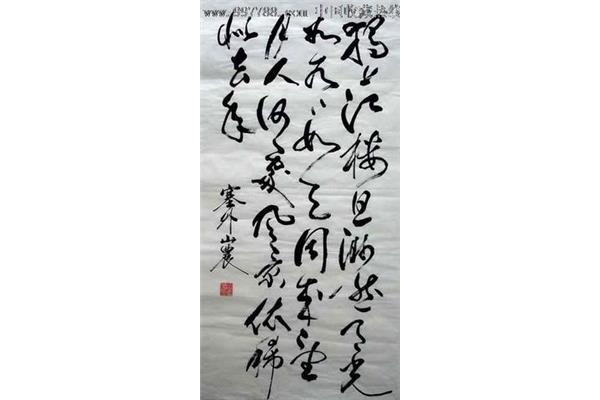 www.997788.com 中国收藏热线
獨上江樓思渺然月光
如水々如天同來望
月人何處風景依稀
似去年
塞外山農